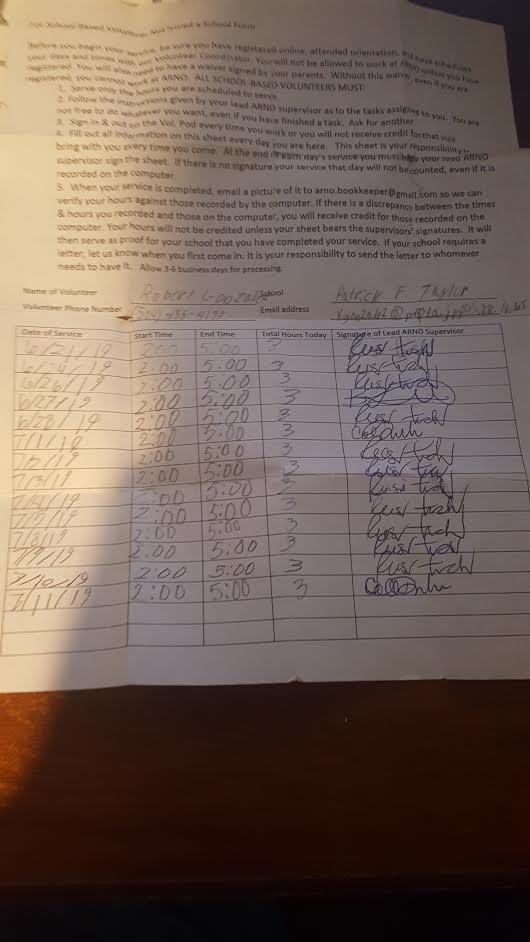 For School-Based Volunteers Not Issued a School Form
Before you begin your service, be sure you have registered online, attended orientation, and have scheduled
your days and times with our Volunteer Coordinator. You will not be allowed to work at ARNO unless you have
registered. You will also need to have a waiver signed by your parents. Without this waiver, even if you are
registered, you cannot work at ARNO. ALL SCHOOL-BASED VOLUNTEERS MUST:
1. Serve only the hours you are scheduled to serve
2. Follow the instructions given by your lead ARNO supervisor as to the tasks assigned to you. You are
not free to do whatever you want, even if you have finished a task. Ask for another.
3. Sign in & out on the Vol. Pod every time you work or you will not receive credit for that visit
4. Fill out all information on this sheet every day you are here. This sheet is your responsibility to
bring with you every time you come. At the end of each day's service you must have your lead ARNO
supervisor sign the sheet. If there is no signature your service that day will not be counted, even if it is
recorded on the computer
5. When your service is completed, email a picture of it to arno.bookkeeper@gmail.com so we can
verify your hours against those recorded by the computer. If there is a discrepancy between the times
& hours you recorded and those on the computer, you will receive credit for those recorded on the
computer. Your hours will not be credited unless your sheet bears the supervisors' signatures. It will
then serve as proof for your school that you have completed your service. If your school requires a
letter, let us know when you first come in. It is your responsibility to send the letter to whomever
needs to have it. Allow 3-6 business days for processing.
Name of Volunteer Robert Gonzalez School Patrick F. Taylor
Volunteer Phone Number Email address
Date of Service Start Time End Time Total Hours Today Signature of Lead ARNO Supervisor
6/21/19 2:00 5:00 3
6/24/19 2:00 5:00 3
6/26/19 2:00 5:00 3
6/27/19 2:00 5:00 3
6/28/19 2:00 5:00 3
7/1/19 2:00 5:00 3
7/2/19 2:00 5:00 3
7/3/19 2:00 5:00 3
7/4/19 2:00 5:00 3
7/5/19 2:00 5:00 3
7/8/19 2:00 5:00 3
7/9/19 2:00 5:00 3
7/10/19 2:00 5:00 3
7/11/19 2:00 5:00 3